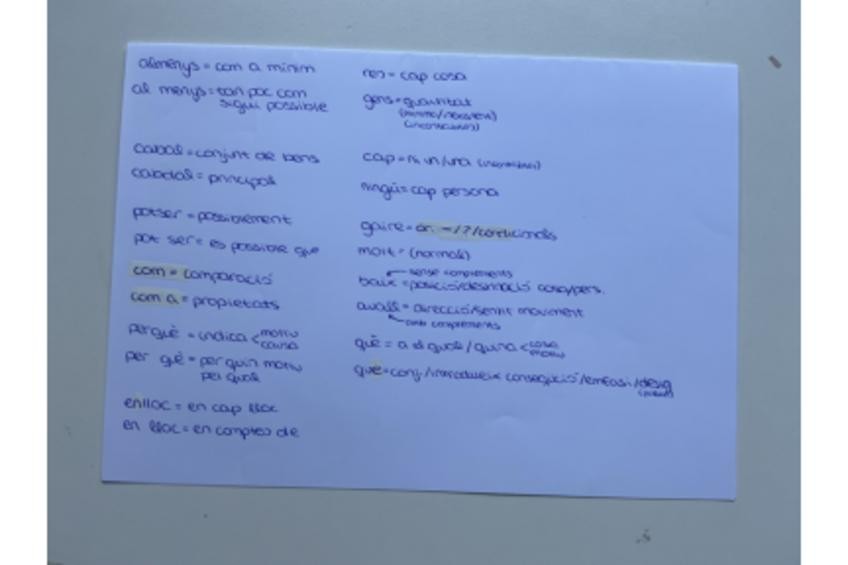 almenys = com a mínim
al menys = tan poc com
sigui possible
cabal = conjunt de bens
cabdal = principal
potser = possiblement
pot ser = és possible que
com = comparació
com a = propietats
perquè = indica < motiu
causa
per què = per quin motiu
pel qual
enlloc = en cap lloc
en lloc = en comptes de
res = cap cosa
gens = quantitat
cap = ni un/una
ningú = cap persona
gaire = or. -/?/condicionals
molt = (normal)
sense complements
baix = posició/destinació cosa/pers.
avall = direcció/sentit moviment
amb complements
què = a el qual / quina < cosa
motiu
que = conj./introdueix consequció/èmfasi/desig